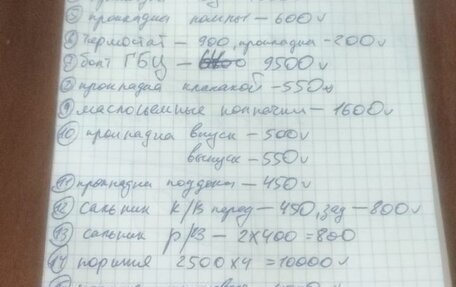 ⑤ прокладка помпы – 600
⑥ термостат – 900, прокладка – 200
⑦ болт ГБЦ – 9500
⑧ прокладка клапакой – 550
⑨ маслосьемные колпачки – 1600
⑩ прокладка впуск – 500
выпуск – 550
⑪ прокладка поддона – 450
⑫ сальник К/В перед – 450, зад – 800
⑬ сальник р/В – 2х400 = 800
⑭ поршня 2500х4 = 10000